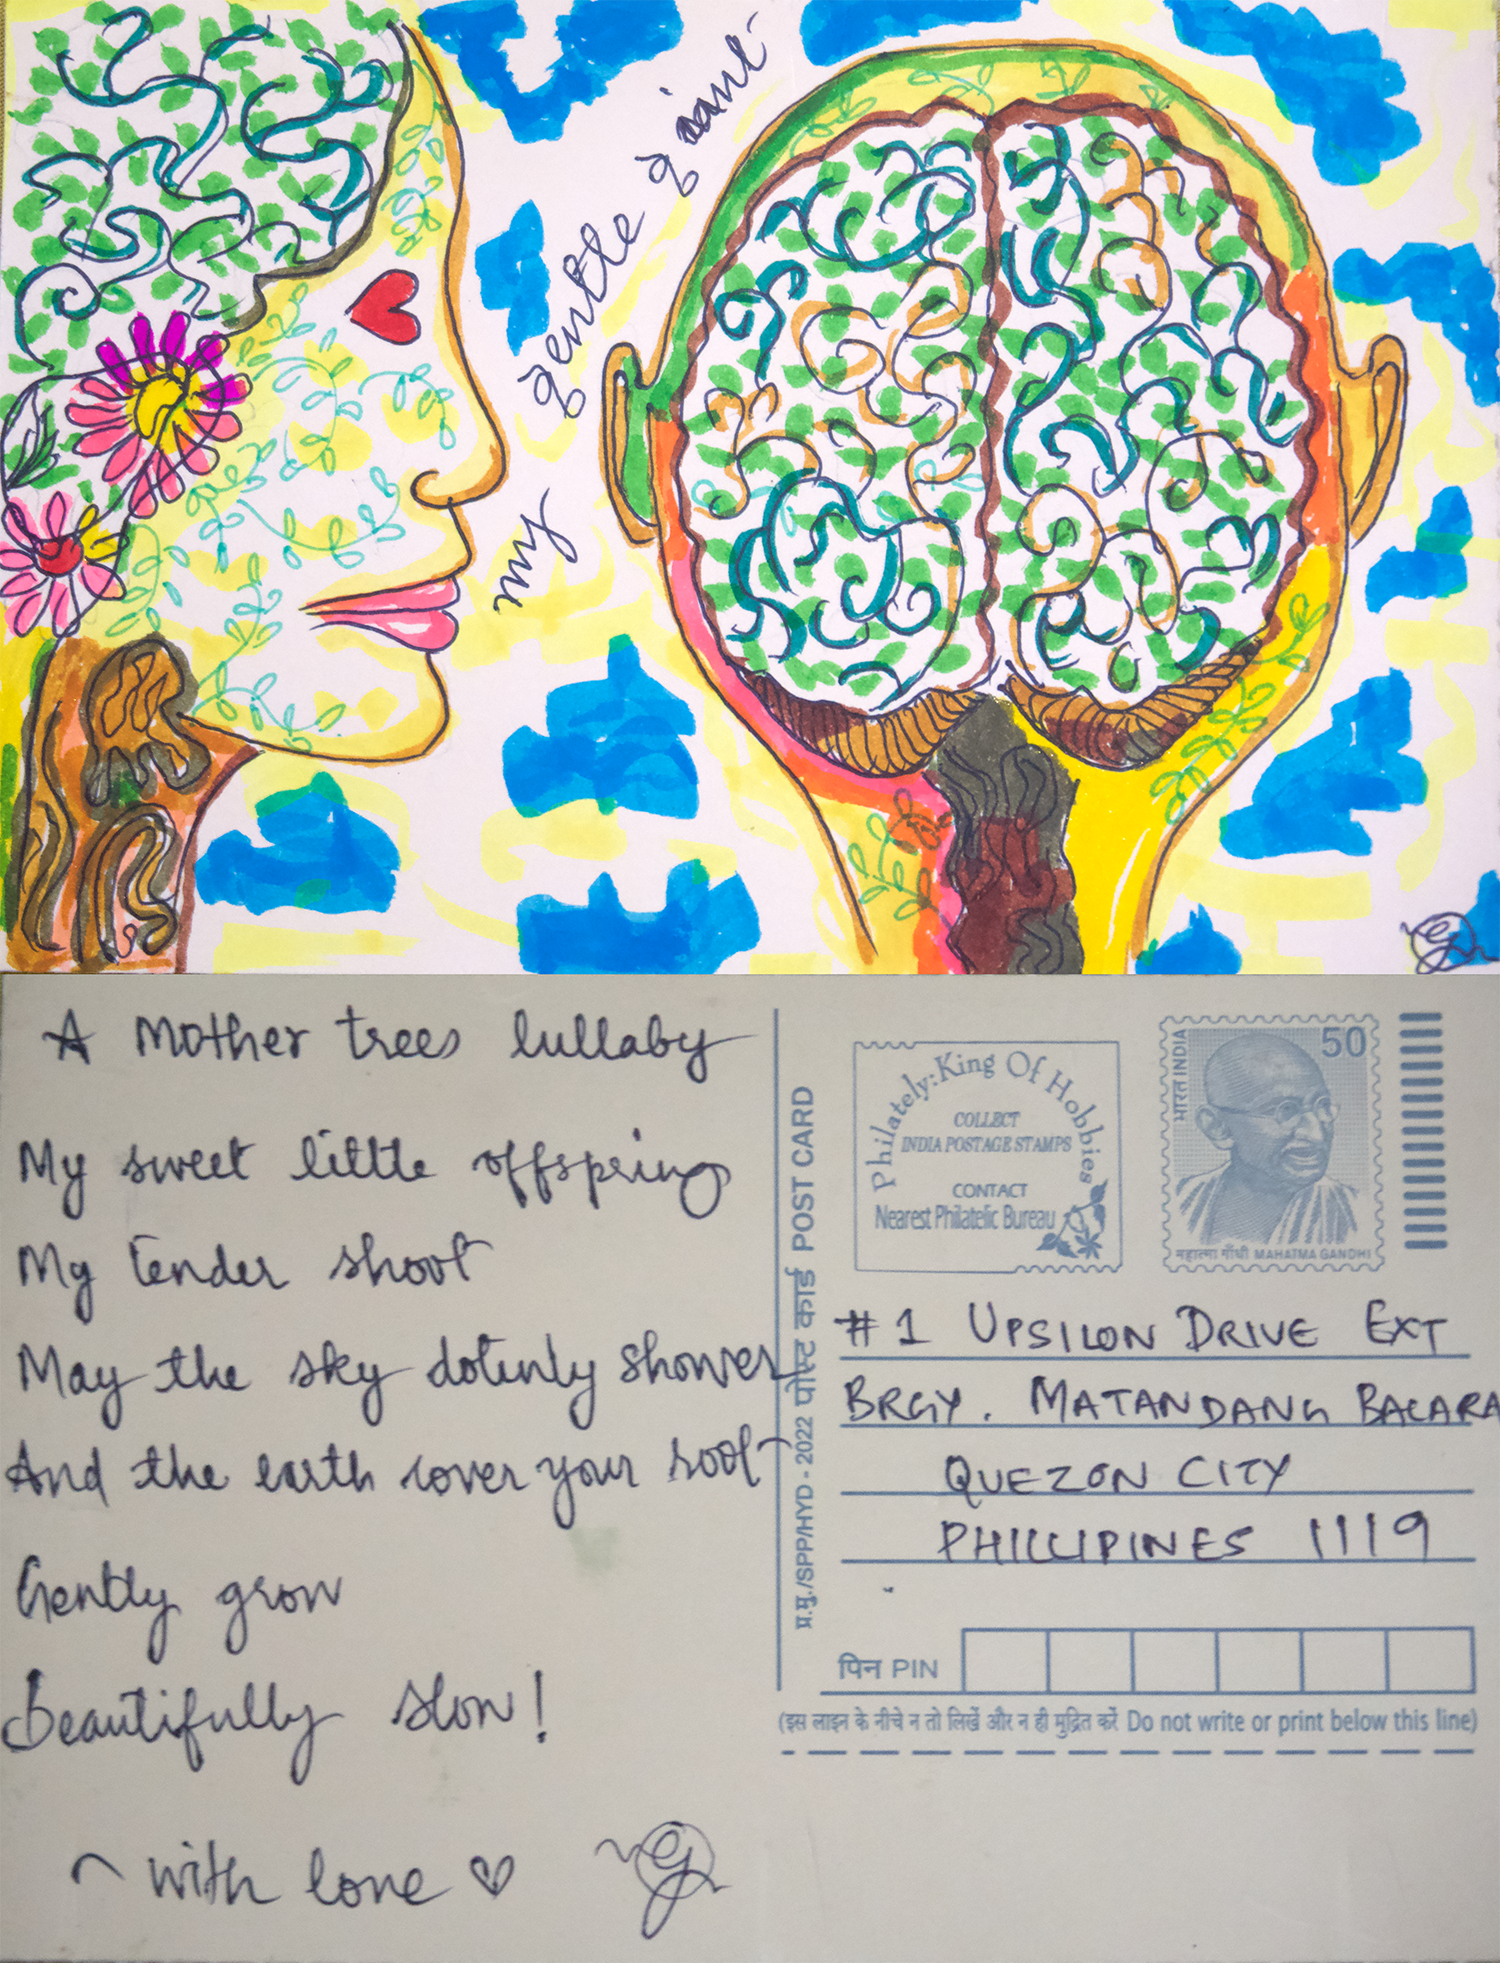 my gentle giant
A Mother trees lullaby
My sweet little offspring
My tender shoot
May the sky dotinly shower
And the earth cover your root
Gently grow
beautifully slow!
~ with love ♡
प्र.मु./SPP/HYD - 2022 पोस्ट कार्ड POST CARD
Philately: King Of Hobbies
COLLECT
INDIA POSTAGE STAMPS
CONTACT
Nearest Philatelic Bureau
भारत INDIA
50
महात्मा गाँधी MAHATMA GANDHI
#1 UPSILON DRIVE EXT
BRGY. MATANDANG BALARA
QUEZON CITY
PHILLIPINES 1119
पिन PIN
(इस लाइन के नीचे न तो लिखें और न ही मुद्रित करें Do not write or print below this line)